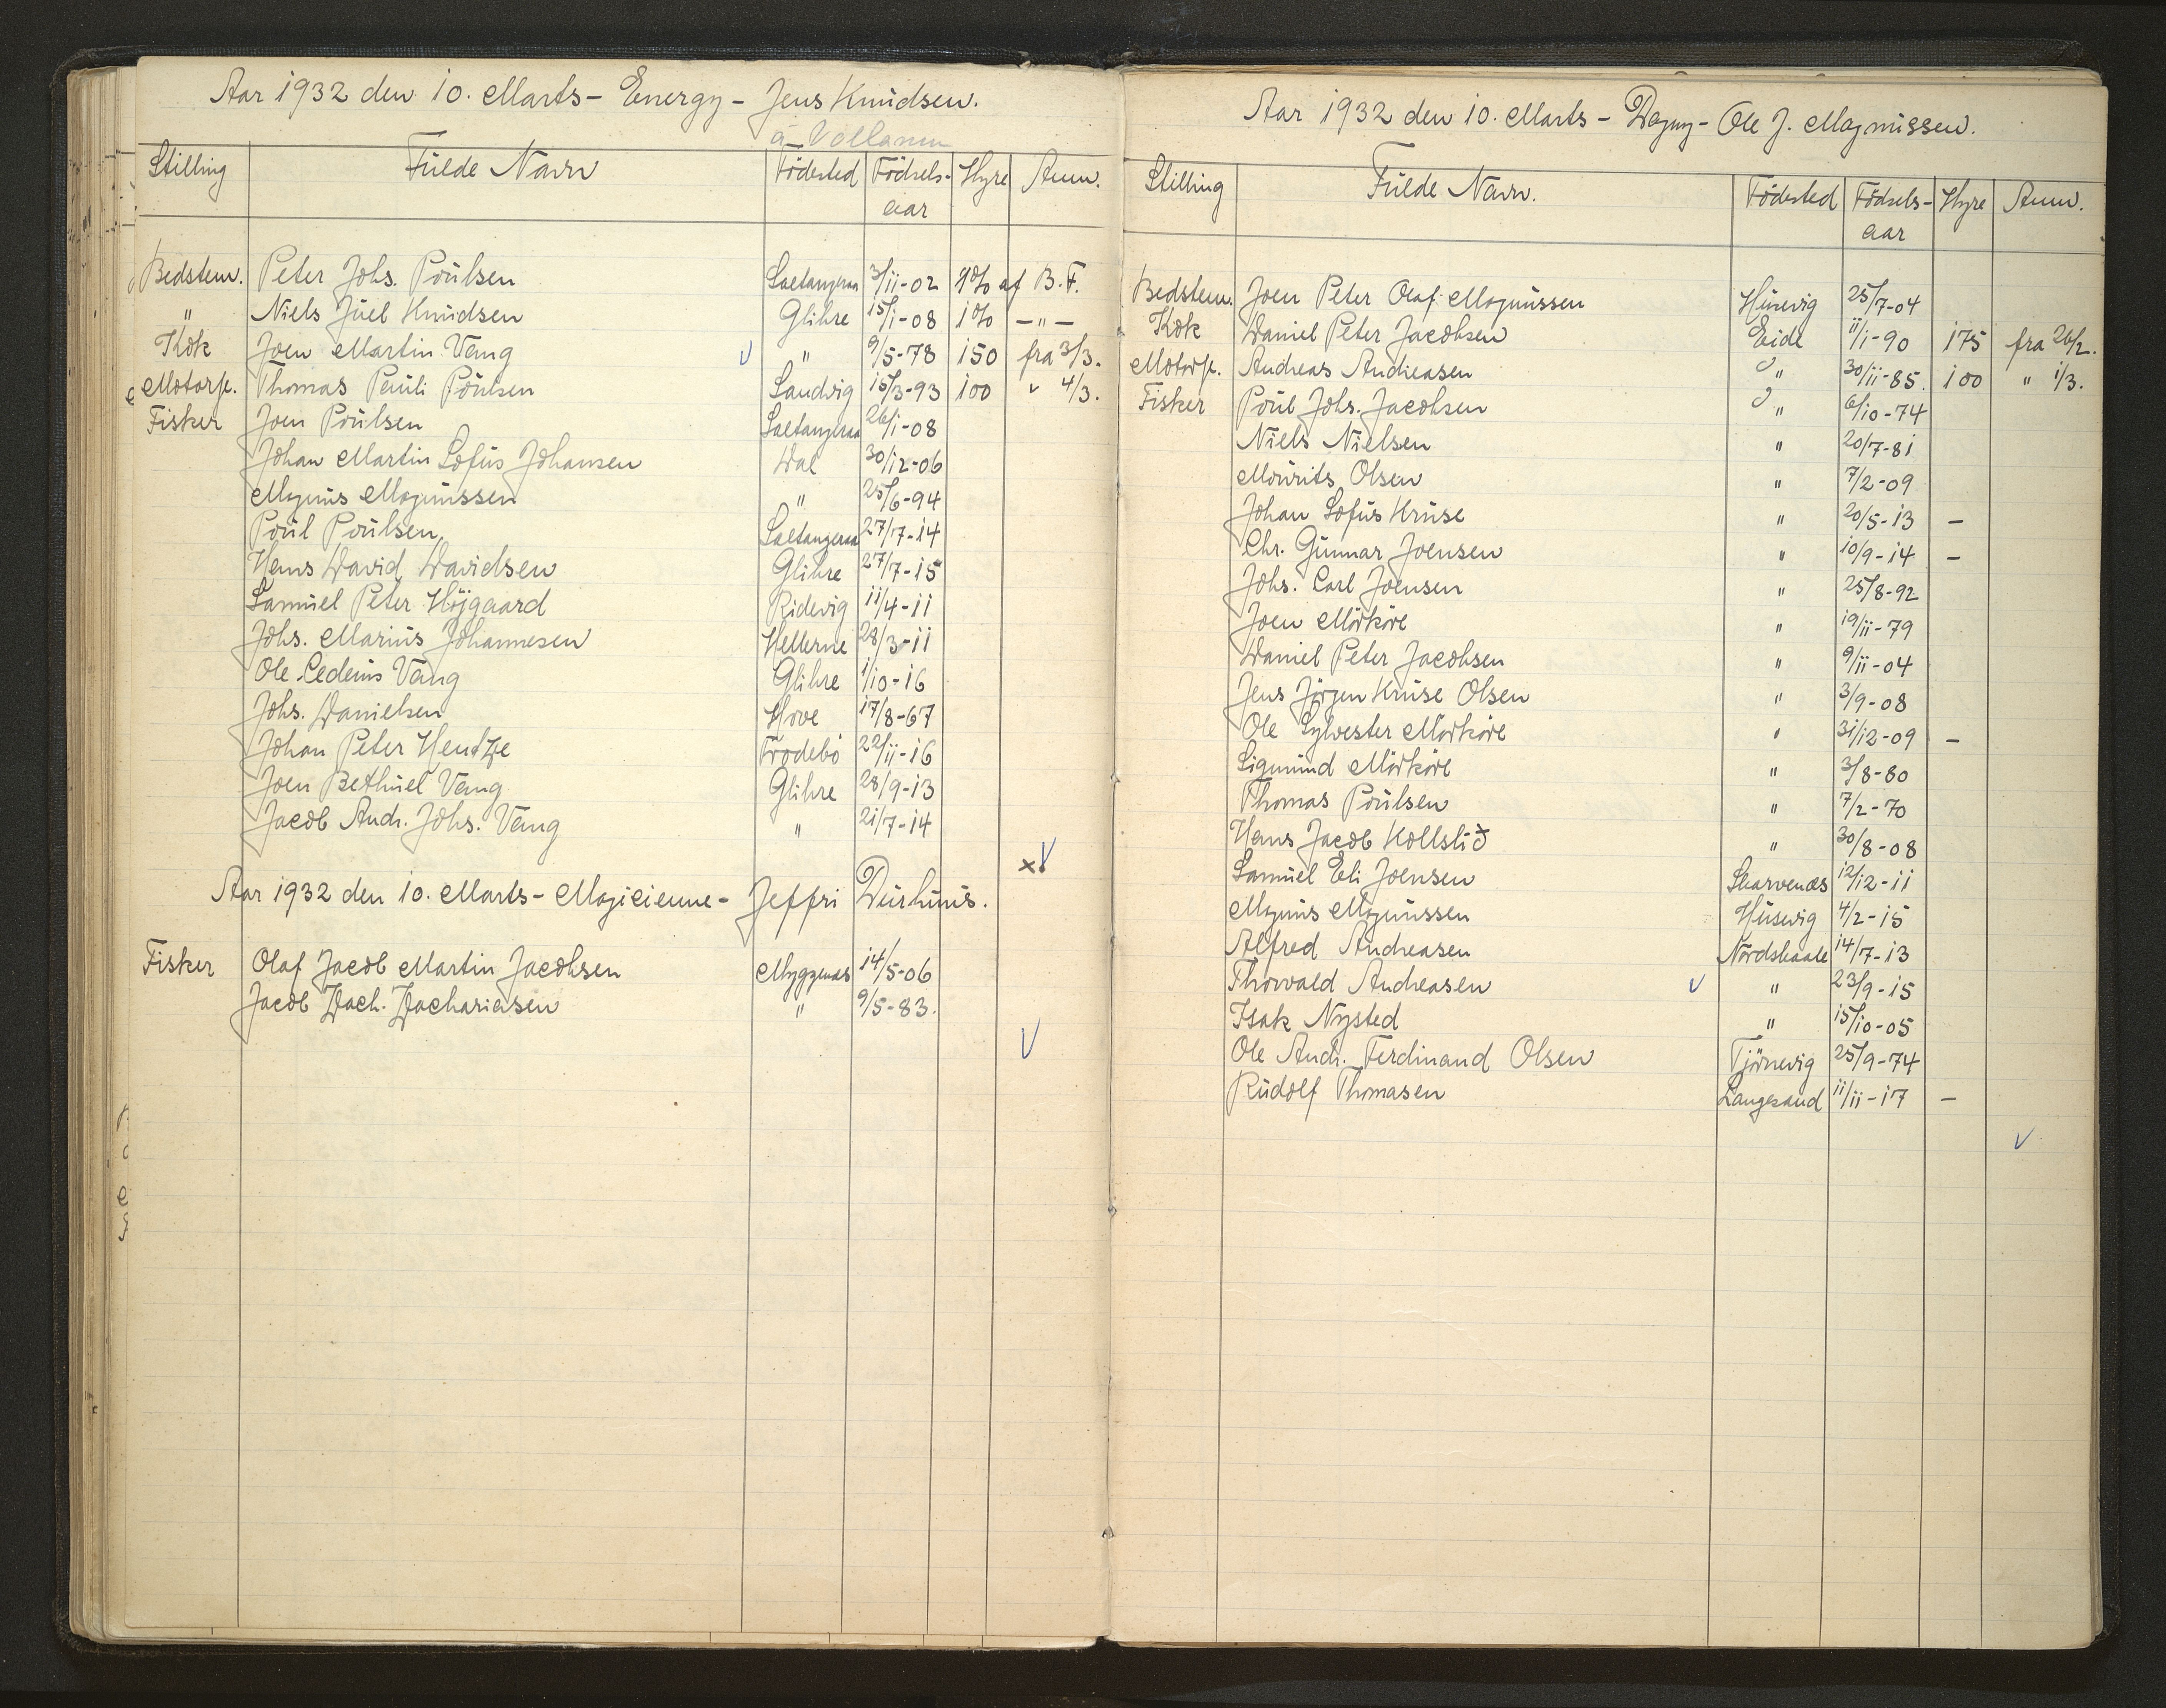 Aar 1932 den 10. Marts - Energy - Jens Knudsen.
á Vollanum
Stilling Fulde Navn Födested Födsels-aar Hyre Anm.
Bedstem. Peter Johs. Poulsen Saltangeraa 3/11-02 1% af B.F.
" Niels Juel Knudsen Glibre 15/1-08 1% -"-
Kok Joen Martin Vang " 9/5-78 150 fra 3/3.
Motorp. Thomas Pauli Poulsen Sandvig 15/3-93 100 " 4/3.
Fisker Joen Poulsen Saltangeraa 26/1-08
Johan Martin Sofus Johansen Wal 30/12-06
Magnus Magnussen " 25/6-94
Poul Poulsen Saltangeraa 27/7-14
Hans David Davidsen Glibre 27/7-15
Samuel Peter Höjgaard Ridevig 11/4-11
Johs. Marius Johannesen Hellerne 28/3-11
Ole Cedenius Vang Glibre 1/10-16
Johs. Danielsen Hove 17/8-67
Johan Peter Hentze Frodebö 22/11-16
Joen Bethuel Vang Glibre 28/9-13
Jacob Andr. Johs. Vang " 21/7-14
Aar 1932 den 10. Marts - Magicienne - Jeffri Durhuus.
Fisker Olaf Jacob Martin Jacobsen Myggenæs 14/5-06
Jacob Zach. Zachariasen " 9/5-83.
Aar 1932 den 10. Marts - Dagny - Ole J. Magnussen.
Stilling Fulde Navn. Födested Födsels-aar Hyre Anm.
Bedstem. Joen Peter Olaf Magnussen Husevig 25/7-04
Kok Daniel Peter Jacobsen Eide 11/1-90 175 fra 26/2.
Motorp. Andreas Andreasen " 30/11-85. 100 " 1/3.
Fisker Poul Johs. Jacobsen " 6/10-74
Niels Nielsen " 20/7-81
Mourits Olsen " 7/2-09
Johan Sofus Kruse " 20/5-13 -
Chr. Gunnar Joensen " 10/9-14 -
Johs. Carl Joensen " 25/8-92
Joen Mörköre " 19/11-79
Daniel Peter Jacobsen " 9/11-04
Jens Jörgen Kruse Olsen " 3/9-08
Ole Sylvester Mörköre " 31/12-09 -
Sigmund Mörköre " 3/8-80
Thomas Poulsen " 7/2-70
Hans Jacob Kollslið " 30/8-08
Samuel Eli Joensen Skarvenæs 12/12-11
Magnus Magnussen Husevig 4/2-15
Alfred Andreasen Nordskaale 14/7-13
Thorvald Andreasen " 23/9-15
Isak Nysted " 15/10-05
Ole Andr. Ferdinand Olsen Tjörnevig 25/9-74
Rudolf Thomasen Langesand 11/11-17 -